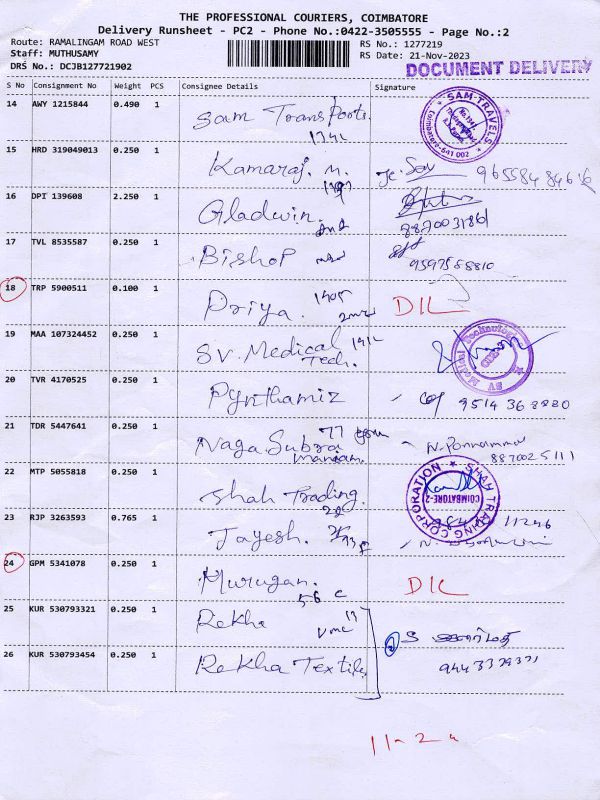 THE PROFESSIONAL COURIERS, COIMBATORE
Delivery Runsheet - PC2 - Phone No.:0422-3505555 - Page No.:2
Route: RAMALINGAM ROAD WEST
Staff: MUTHUSAMY
DRS No.: DCJB127721902
RS No.: 1277219
RS Date: 21-Nov-2023
DOCUMENT DELIVERY
S No Consignment No Weight PCS Consignee Details Signature
14 AWY 1215844 0.490 1 Sam Transports.
SAM-TRAVELS
Coimbatore-641 002
15 HRD 319049013 0.250 1 Kamaraj. M.
16 DPI 139608 2.250 1 Gladwin.
8870031861
17 TVL 8535587 0.250 1 Bishop
9597588810
18 TRP 5900511 0.100 1 Priya. D/L
19 MAA 107324452 0.250 1 SV. Medical
Tech.
SV Medical Technology
20 TVR 4170525 0.250 1
9514368880
21 TDR 5447641 0.250 1 Naga Subra
maniam.
8870025111
22 MTP 5055818 0.250 1 Shah Trading.
SHAH TRADING CORPORATION
COIMBATORE-2
23 RJP 3263593 0.765 1 Jayesh.
11246
24 GPM 5341078 0.250 1 Murugan. D/L
56 C
25 KUR 530793321 0.250 1 Rekha
26 KUR 530793454 0.250 1 Rekha Textile